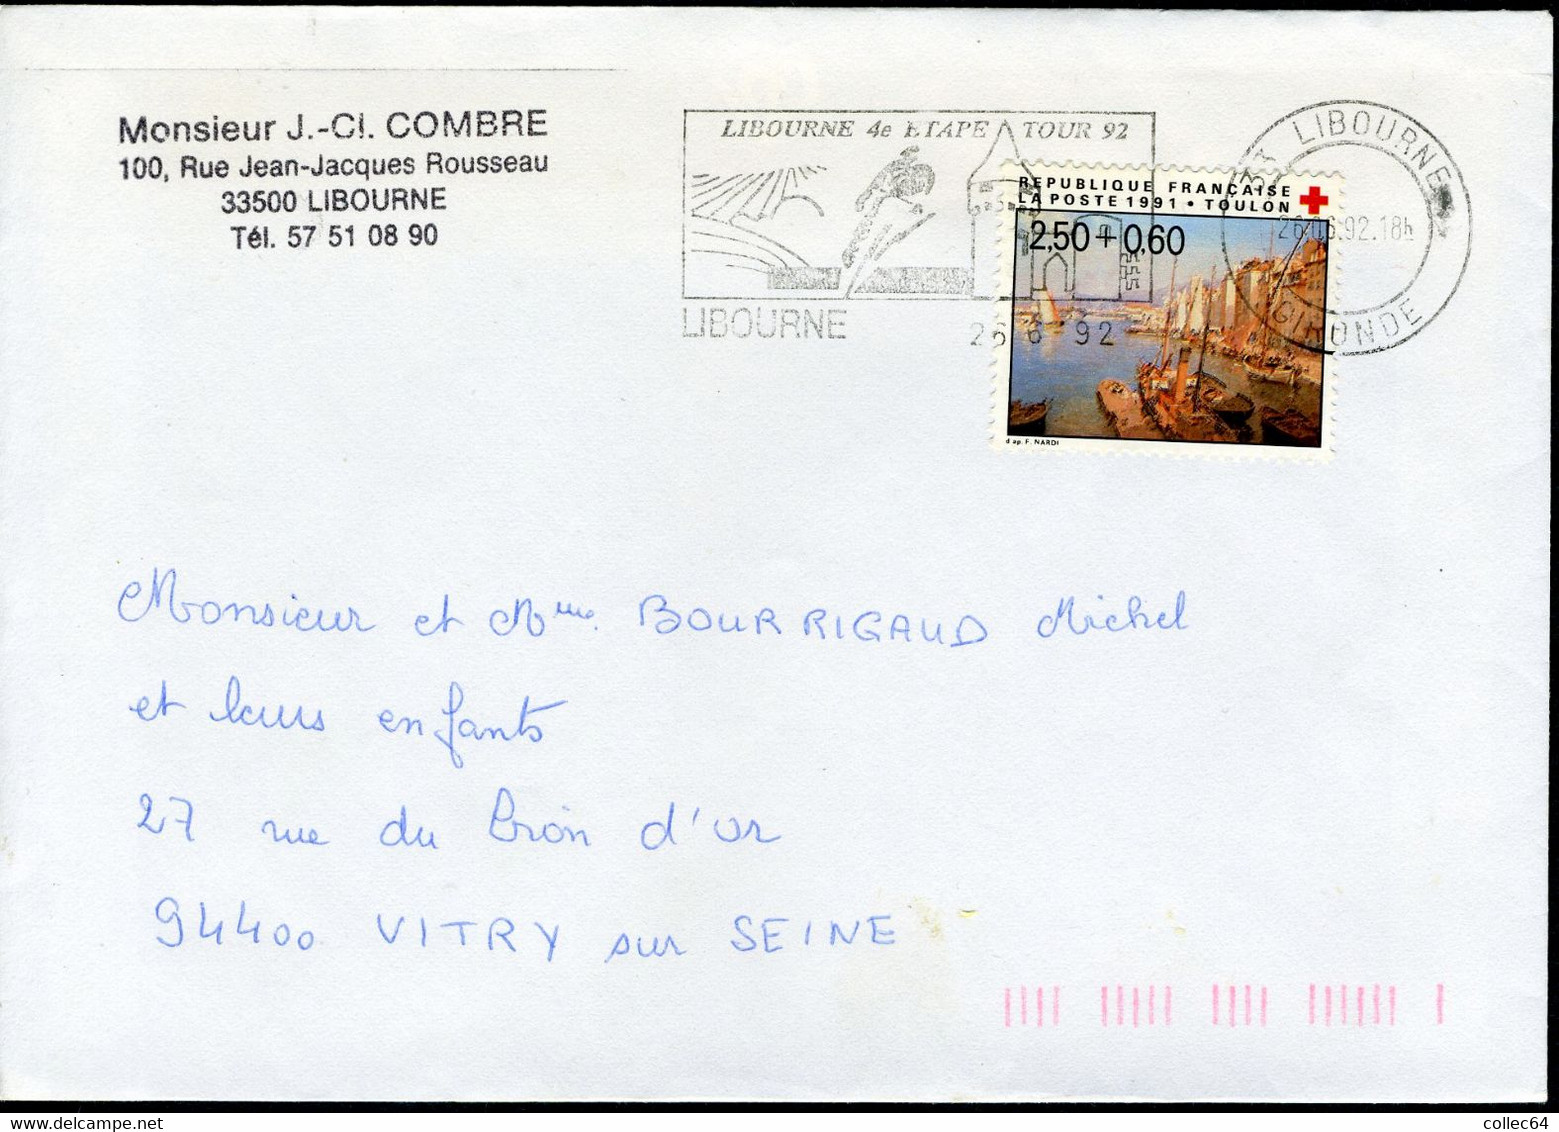 Monsieur J.-Cl. COMBRE
100, Rue Jean-Jacques Rousseau
33500 LIBOURNE
Tél. 57 51 08 90
LIBOURNE 4e ETAPE TOUR 92
LIBOURNE
26 6 92
33 LIBOURNE
26.06.92.18h
GIRONDE
REPUBLIQUE FRANÇAISE
LA POSTE 1991 • TOULON
2,50 + 0,60
d'ap. F. NARDI
Monsieur et Mme. BOURRIGAUD Michel
et leurs enfants
27 rue du Lion d'or
94400 VITRY sur SEINE
collec64